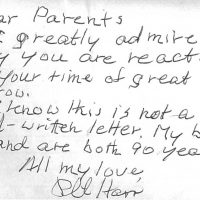 ar Parents
I greatly admire
y you are react
your time of great
row.
I know this is not a
l-written letter. My b
and are both 90 yea
All my love,